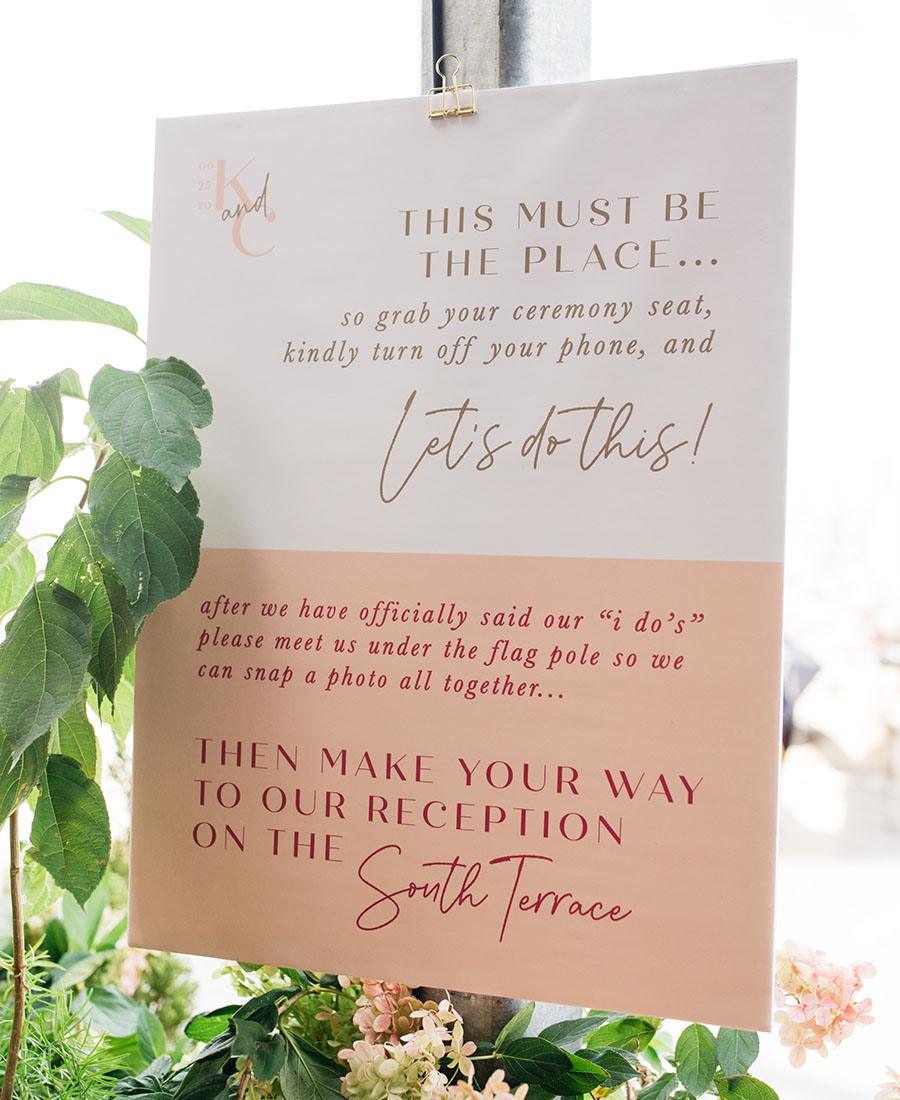 09
25
20
K
and
C
THIS MUST BE
THE PLACE...
so grab your ceremony seat,
kindly turn off your phone, and
Let's do this!
after we have officially said our “i do’s”
please meet us under the flag pole so we
can snap a photo all together...
THEN MAKE YOUR WAY
TO OUR RECEPTION
ON THE
South Terrace